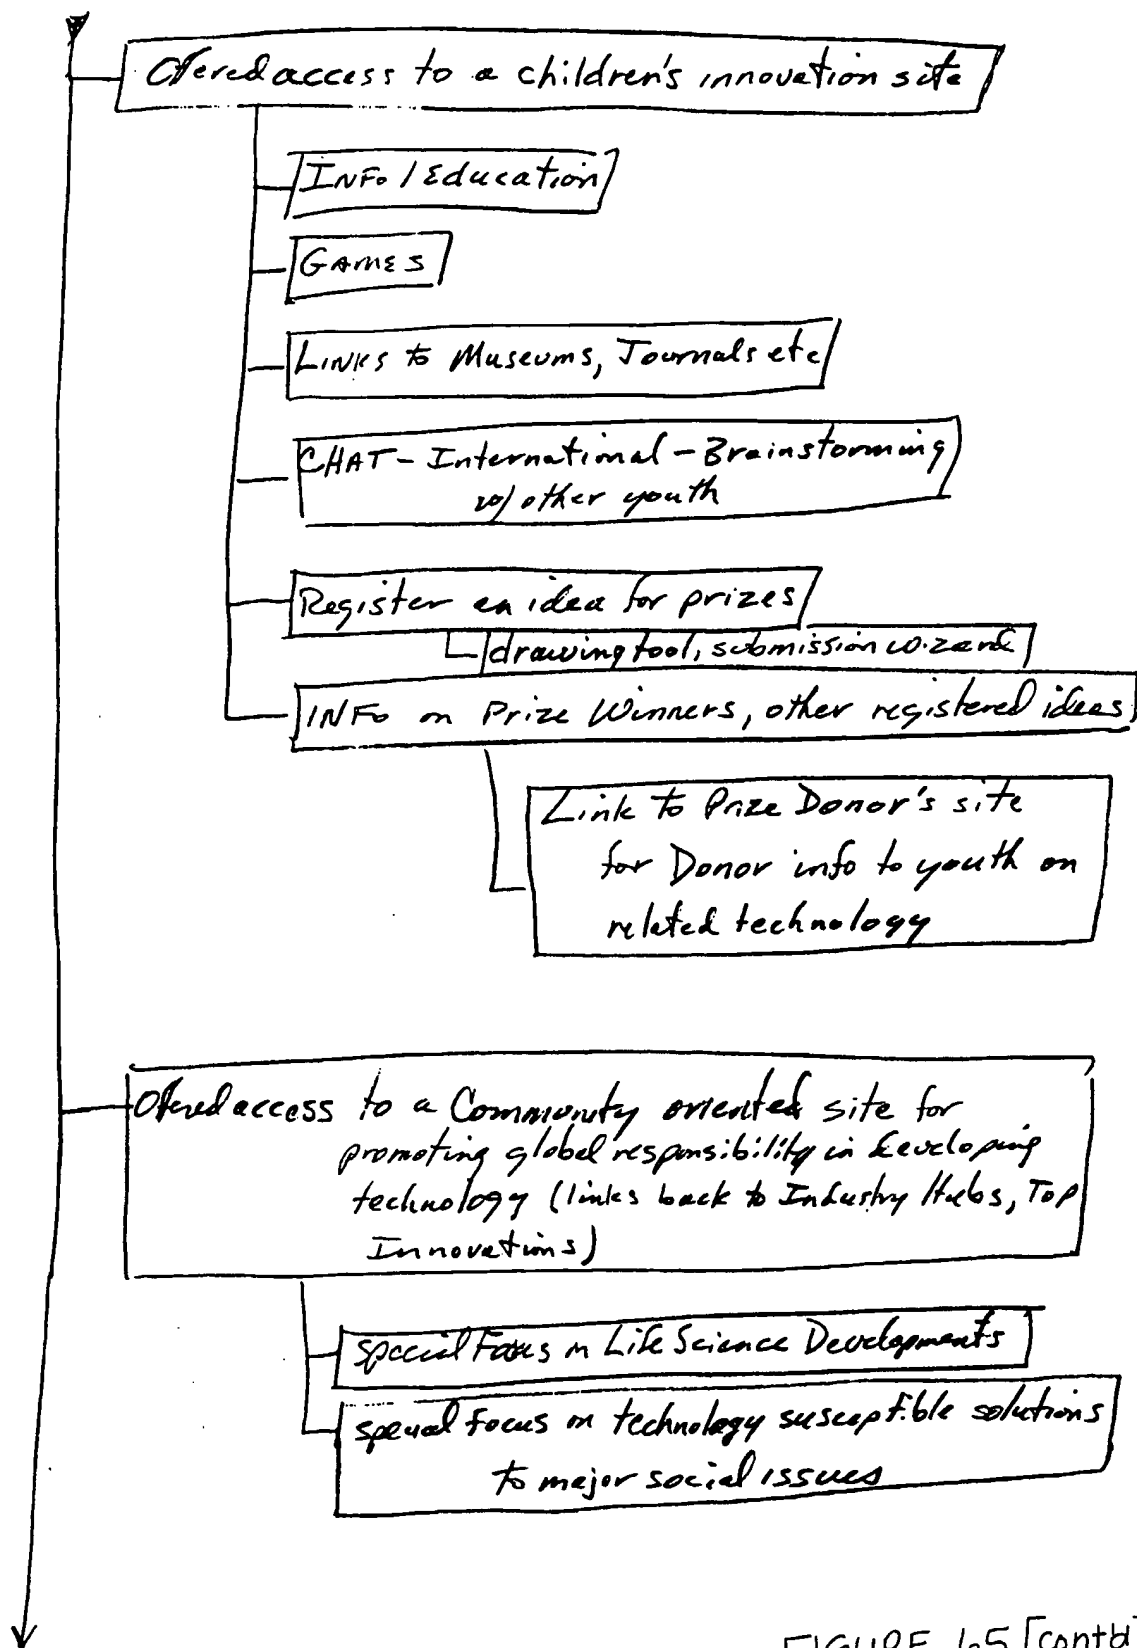 Offered access to a children's innovation site
INFO / Education
GAMES
LINKS to Museums, Journals etc
CHAT - International - Brainstorming
w/ other youth
Register an idea for prizes
drawing tool, submission wizard
INFO on Prize Winners, other registered ideas
Link to Prize Donor's site
for Donor info to youth on
related technology
Offered access to a Community oriented site for
promoting global responsibility in developing
technology (links back to Industry Hubs, Top
Innovations)
special Focus on Life Science Developments
special focus on technology susceptible solutions
to major social issues
FIGURE 65 [contd]